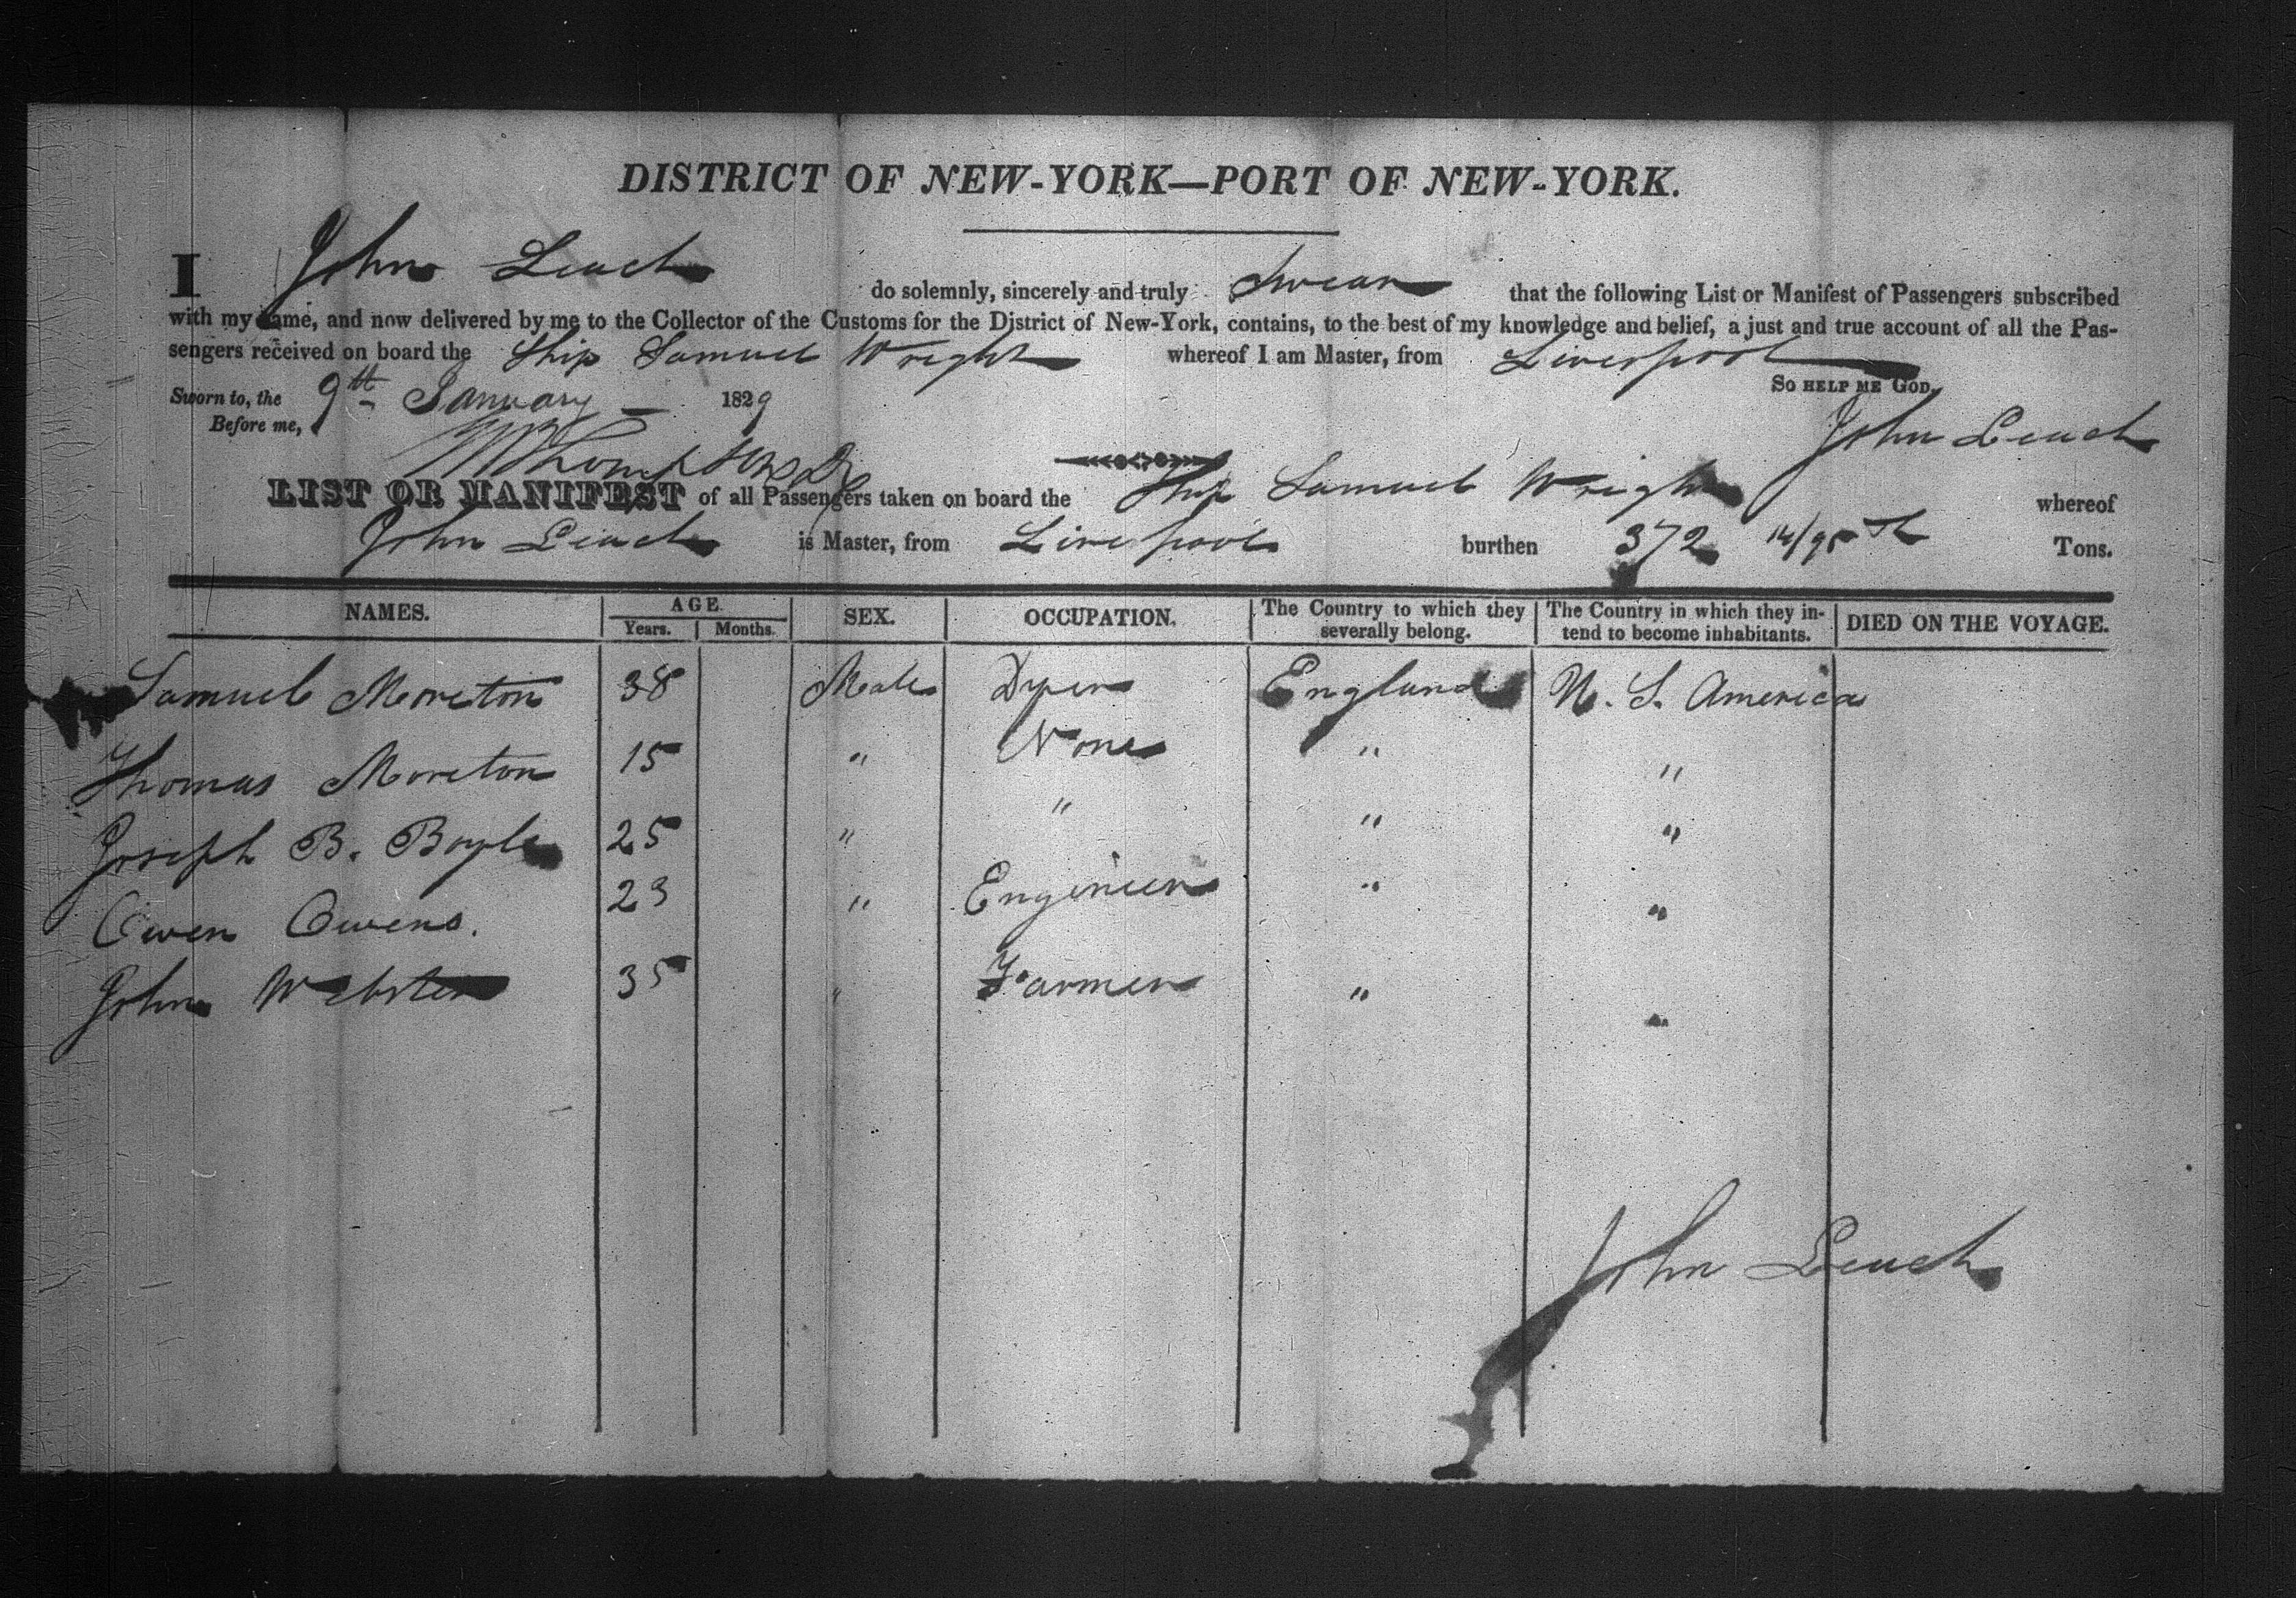 DISTRICT OF NEW-YORK—PORT OF NEW-YORK.
I John Leach do solemnly, sincerely and truly Swear that the following List or Manifest of Passengers subscribed
with my name, and now delivered by me to the Collector of the Customs for the District of New-York, contains, to the best of my knowledge and belief, a just and true account of all the Pas-
sengers received on board the Ship Samuel Wright whereof I am Master, from Liverpool
SO HELP ME GOD.
Sworn to, the 9th January 1829
Before me,
John Leach
LIST OR MANIFEST of all Passengers taken on board the Ship Samuel Wright whereof
John Leach is Master, from Liverpool burthen 372 14/95th Tons.
NAMES. AGE. SEX. OCCUPATION. The Country to which they severally belong. The Country in which they in-tend to become inhabitants. DIED ON THE VOYAGE.
Years. Months.
Samuel Moreton 38 Male Dyer England U. S. America
Thomas Moreton 15 " None " "
Joseph B. Boyle 25 " " " "
Owen Owens. 23 " Engineer " "
John Webster 35 " Farmer " "
John Leach